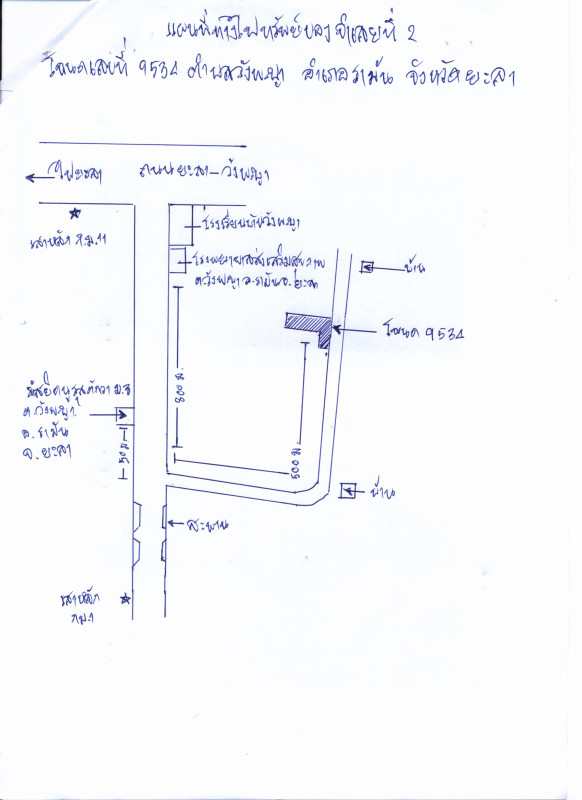 แผนที่ทางไปทรัพย์ของจำเลยที่ 2
โฉนดเลขที่ 9534 ตำบลวังพญา อำเภอรามัน จังหวัดยะลา
ไปยะลา
ถนนยะลา-วังพญา
เสาหลัก ก.ม.11
โรงเรียนบ้านวังพญา
โรงพยาบาลส่งเสริมสุขภาพ
ต.วังพญา อ.รามัน จ.ยะลา
บ้าน
โฉนด 9534
800 ม.
ม.3
ต.วังพญา
อ.รามัน
จ.ยะลา
50 ม.
500 ม.
บ้าน
สะพาน
เสาหลัก
ก.ม.1